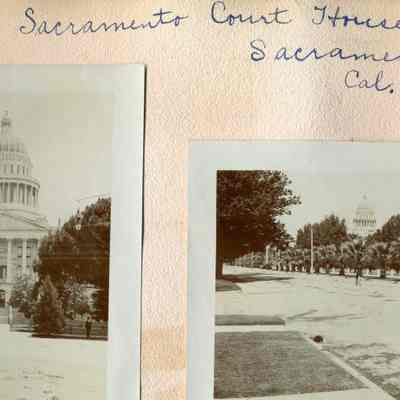 Sacramento Court House
Sacrame
Cal.